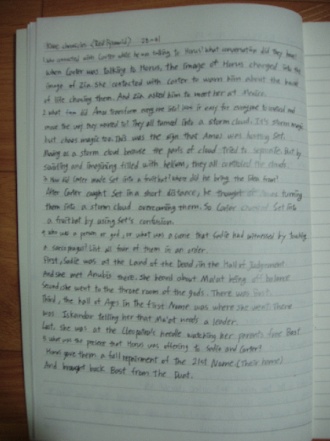 Kane chronicles (Red Pyramid) 28~41
1. Who connected with Carter while he was talking to Horus? What conversation did they have?
When Carter was talking to Horus, the image of Horus changed into the
image of Zia. She contacted with Carter to warn him about the house
of life chasing them. And Zia asked him to meet her at
2. What form did Amos transform everyone into? Was it easy for everyone to control and
move the way they wanted to? They all turned into a storm cloud. It's storm magic
but chaos magic too. This was the sign that Amos was hosting Set.
Moving as a storm cloud because the parts of cloud tried to separate. But by
and with helium, they all controlled the clouds.
3. How did Carter made Set into a fruitbat? Where did he bring the idea from?
After Carter caught Set in a short distance, he thought of Amos turning
them into a storm cloud overcoming them. So Carter changed Set into
a fruitbat by using Set's confusion.
4. Who was a person or god, or what was a scene that Sadie had witnessed by
a ? List all four of them in an order.
First, Sadie was at the Land of the Dead, in the Hall of Judgement
And she met Anubis there. She heard about Ma'at being off balance
Second she went to the throne room of the gods. There was
Third, the hall of Ages in the First Nome was where she went. There
was Iskandar telling her that Ma'at needs a leader.
Last, she was at the Cleopatra's needle watching her parents free Bast
5. What was the present that Horus was offering to Sadie and Carter?
Horus gave them a full repairment of the 21st Nome (Their home)
And brought back Bast from the Duat.